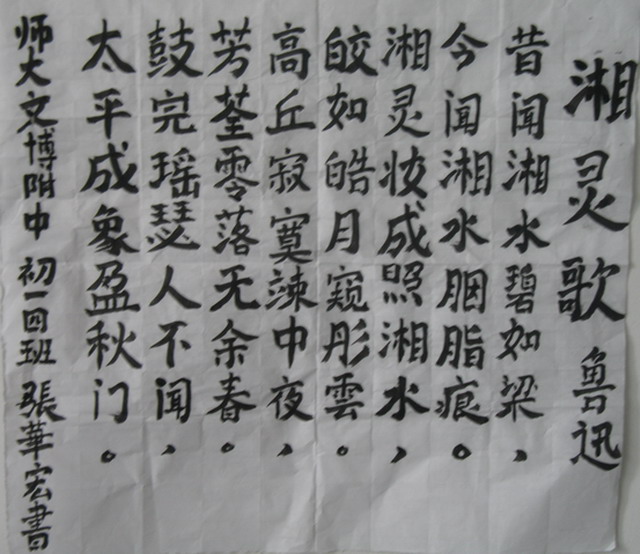 湘灵歌 鲁迅
昔闻湘水碧如梁，
今闻湘水胭脂痕。
湘灵妆成照湘水，
皎如皓月窥彤雲。
高丘寂寞竦中夜，
芳荃零落无余春。
鼓完瑶瑟人不闻，
太平成象盈秋门。
师大文博附中 初一四班 張華宏書